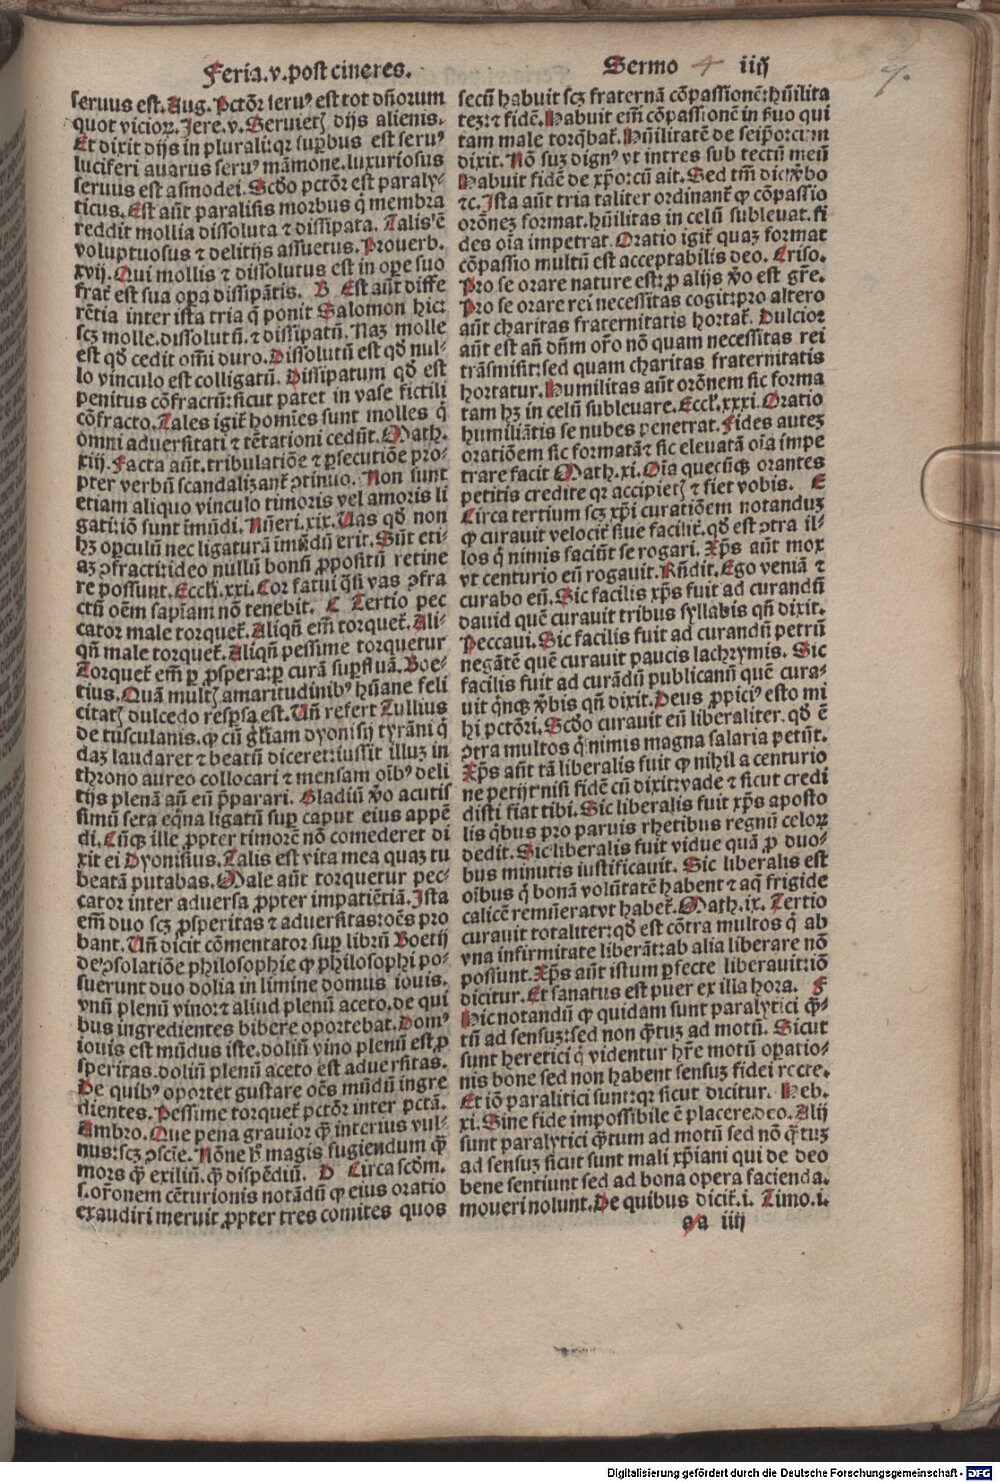 Feria.v.post cineres.
Sermo 4 iiij
9.
seruus est. Aug. Pctōr seru⁹ est tot dn̄orum
quot vicioꝝ. Jere.v. Seruietꝭ dijs alienis.
Et dixit dijs in plurali: qꝛ suꝑbus est seru⁹
luciferi auarus seru⁹ māmone. luxuriosus
seruus est asmodei. Scd̄o pctōr est paraly-
ticus. Est aūt paralisis morbus q̇ membra
reddit mollia dissoluta ⁊ dissipata. Talis ē
voluptuosus ⁊ delitijs assuetus. Prouerb.
xvij. Qui mollis ⁊ dissolutus est in oꝑe suo
frat̄ est sua oꝑa dissipātis. B Est aūt diffe
rētia inter ista tria q̄ ponit Salomon hic:
scꝫ molle. dissolutū. ⁊ dissipatū. Naꝫ molle
est qd̄ cedit om̄i duro. Dissolutū est qd̄ nul-
lo vinculo est colligatū. Dissipatum qd̄ est
penitus cōfractū: sicut patet in vase fictili
cōfracto. Tales igit̄ homīes sunt molles q̇
omni aduersitati ⁊ tētationi cedūt. Math.
xiij. Facta aūt. tribulatiōe ⁊ ꝑsecutiōe pro-
pter verbū scandalizant̄ ↄtinuo. Non sunt
etiam aliquo vinculo timoris vel amoris li
gati: iō sunt īmūdi. Nūeri.xix. Uas qd̄ non
hꝫ oꝑculū nec ligaturā īmūdū erit. Sūt eti-
aꝫ ↄfracti: ideo nullū bonū ꝓpositū retine
re possunt. Eccli.xxi. Cor fatui q̇si vas ↄfra
ctū oēm sapīam nō tenebit. C Tertio pec
cator male torquet̄. Aliqn̄ em̄ torquet̄. Ali-
qn̄ male torquet̄. Aliqn̄ pessime torquetur
Torquet̄ em̄ ꝑ ꝓspera: ꝑ curā suꝑfluā. Boe-
tius. Quā multꝭ amaritudinib⁹ hūane feli
citatꝭ dulcedo resꝑsa est. Un̄ refert Tullius
de tusculanis. ꝙ cū gl̄iam dyonisij tyrāni q̇
daꝫ laudaret ⁊ beatū diceret: iussit illuꝫ in
throno aureo collocari ⁊ mensam oīb⁹ deli
tijs plenā an̄ eū p̄parari. Gladiū v̄o acutis
simū seta eq̇na ligatū suꝑ caput eius appē
di. Cūqꝫ ille ꝓpter timorē nō comederet di
xit ei Dyonisius. Talis est vita mea quaꝫ tu
beatā putabas. Male aūt torquetur pec-
cator inter aduersa ꝓpter impatiētiā. Ista
em̄ duo scꝫ ꝓsperitas ⁊ aduersitas: oēs pro
bant. Un̄ dicit cōmentator suꝑ librū Boetij
de ↄsolatiōe philosophie ꝙ philosophi po-
suerunt duo dolia in limine domus iouis.
vnū plenū vino: ⁊ aliud plenū aceto. de qui
bus ingredientes bibere oportebat. Dom⁹
iouis est mūdus iste. doliū vino plenū est ꝓ
speritas. doliū plenū aceto est aduersitas.
De quib⁹ oportet gustare oēs mūdū ingre
dientes. Pessime torquet̄ pctōr inter pctā.
Ambro. Que pena grauior q̄ interius vul-
nus: scꝫ ↄscīe. Nōne h̄ magis fugiendum q̄
mors q̄ exiliū. q̄ dispēdiū. D Circa scdm̄.
s. or̄onem cēturionis notādū ꝙ eius oratio
exaudiri meruit ꝓpter tres comites quos
secū habuit scꝫ fraternā cōpassionē: hūilita
teꝫ: ⁊ fidē. Habuit em̄ cōpassionē in suo qui
tam male torq̄bat̄. Hūilitatē de seip̄o: cum
dixit. Nō suꝫ dign⁹ vt intres sub tectū meū
Habuit fidē de xp̄o: cū ait. Sed tm̄ dic v̄bo
⁊c. Ista aūt tria taliter ordinant̄ ꝙ cōpassio
orōneꝫ format. hūilitas in celū subleuat. fi
des oīa impetrat. Oratio igit̄ quaꝫ format
cōpassio multū est acceptabilis deo. Criso.
Pro se orare nature est: ꝓ alijs v̄o est gr̄e.
Pro se orare rei necessitas cogit: pro altero
aūt charitas fraternitatis hortat̄. Dulcior
aūt est an̄ dn̄m or̄o nō quam necessitas rei
trāsmisit: sed quam charitas fraternitatis
hortatur. Humilitas aūt orōnem sic forma
tam hꝫ in celū subleuare. Eccl̄.xxxi. Oratio
humiliātis se nubes penetrat. Fides auteꝫ
oratiōem sic formatā ⁊ sic eleuatā oīa impe
trare facit Math.xi. Oīa quecūqꝫ orantes
petitis credite qꝛ accipietꝭ ⁊ fiet vobis. E
Circa tertium scꝫ xp̄i curatiōem notanduꝫ
ꝙ curauit velocit̄ siue facilit̄. qd̄ est ↄtra il-
los q̇ nimis faciūt se rogari. Xp̄s aūt mox
vt centurio eū rogauit. Rn̄dit. Ego veniā ⁊
curabo eū. Sic facilis xp̄s fuit ad curandū
dauid quē curauit tribus syllabis qn̄ dixit.
Peccaui. Sic facilis fuit ad curandū petrū
negātē quē curauit paucis lachrymis. Sic
facilis fuit ad curādū publicanū quē cura-
uit q̇nqꝫ v̄bis qn̄ dixit. Deus ꝓpici⁹ esto mi
hi pctōri. Scd̄o curauit eū liberaliter. qd̄ ē
ↄtra multos q̇ nimis magna salaria petūt.
Xp̄s aūt tā liberalis fuit ꝙ nihil a centurio
ne petijt nisi fidē cū dixit: vade ⁊ sicut credi
disti fiat tibi. Sic liberalis fuit xp̄s aposto
lis q̇bus pro paruis rhetibus regnū celoꝝ
dedit. Sic liberalis fuit vidue quā ꝓ duo-
bus minutis iustificauit. Sic liberalis est
oībus q̇ bonā volūtatē habent ⁊ aq̄ frigide
calicē remūerat vt habet̄. Math.ix. Tertio
curauit totaliter: qd̄ est cōtra multos q̇ ab
vna infirmitate liberāt: ab alia liberare nō
possunt. Xp̄s aūt istum ꝑfecte liberauit: iō
dicitur. Et sanatus est puer ex illa hora. F
Hic notandū ꝙ quidam sunt paralytici q̄-
tū ad sensuꝫ: sed non q̄tuꝫ ad motū. Sicut
sunt heretici q̇ videntur hr̄e motū oꝑatio-
nis bone sed non habent sensuꝫ fidei recte.
Et iō paralitici sunt: qꝛ sicut dicitur. Heb.
xi. Sine fide impossibile ē placere deo. Alij
sunt paralytici q̄tum ad motū sed nō q̄tuꝫ
ad sensuꝫ sicut sunt mali xp̄iani qui de deo
bene sentiunt sed ad bona opera facienda.
moueri nolunt. De quibus dicit̄.i. Timo.i.
aa iiij
Digitalisierung gefördert durch die Deutsche Forschungsgemeinschaft - DFG